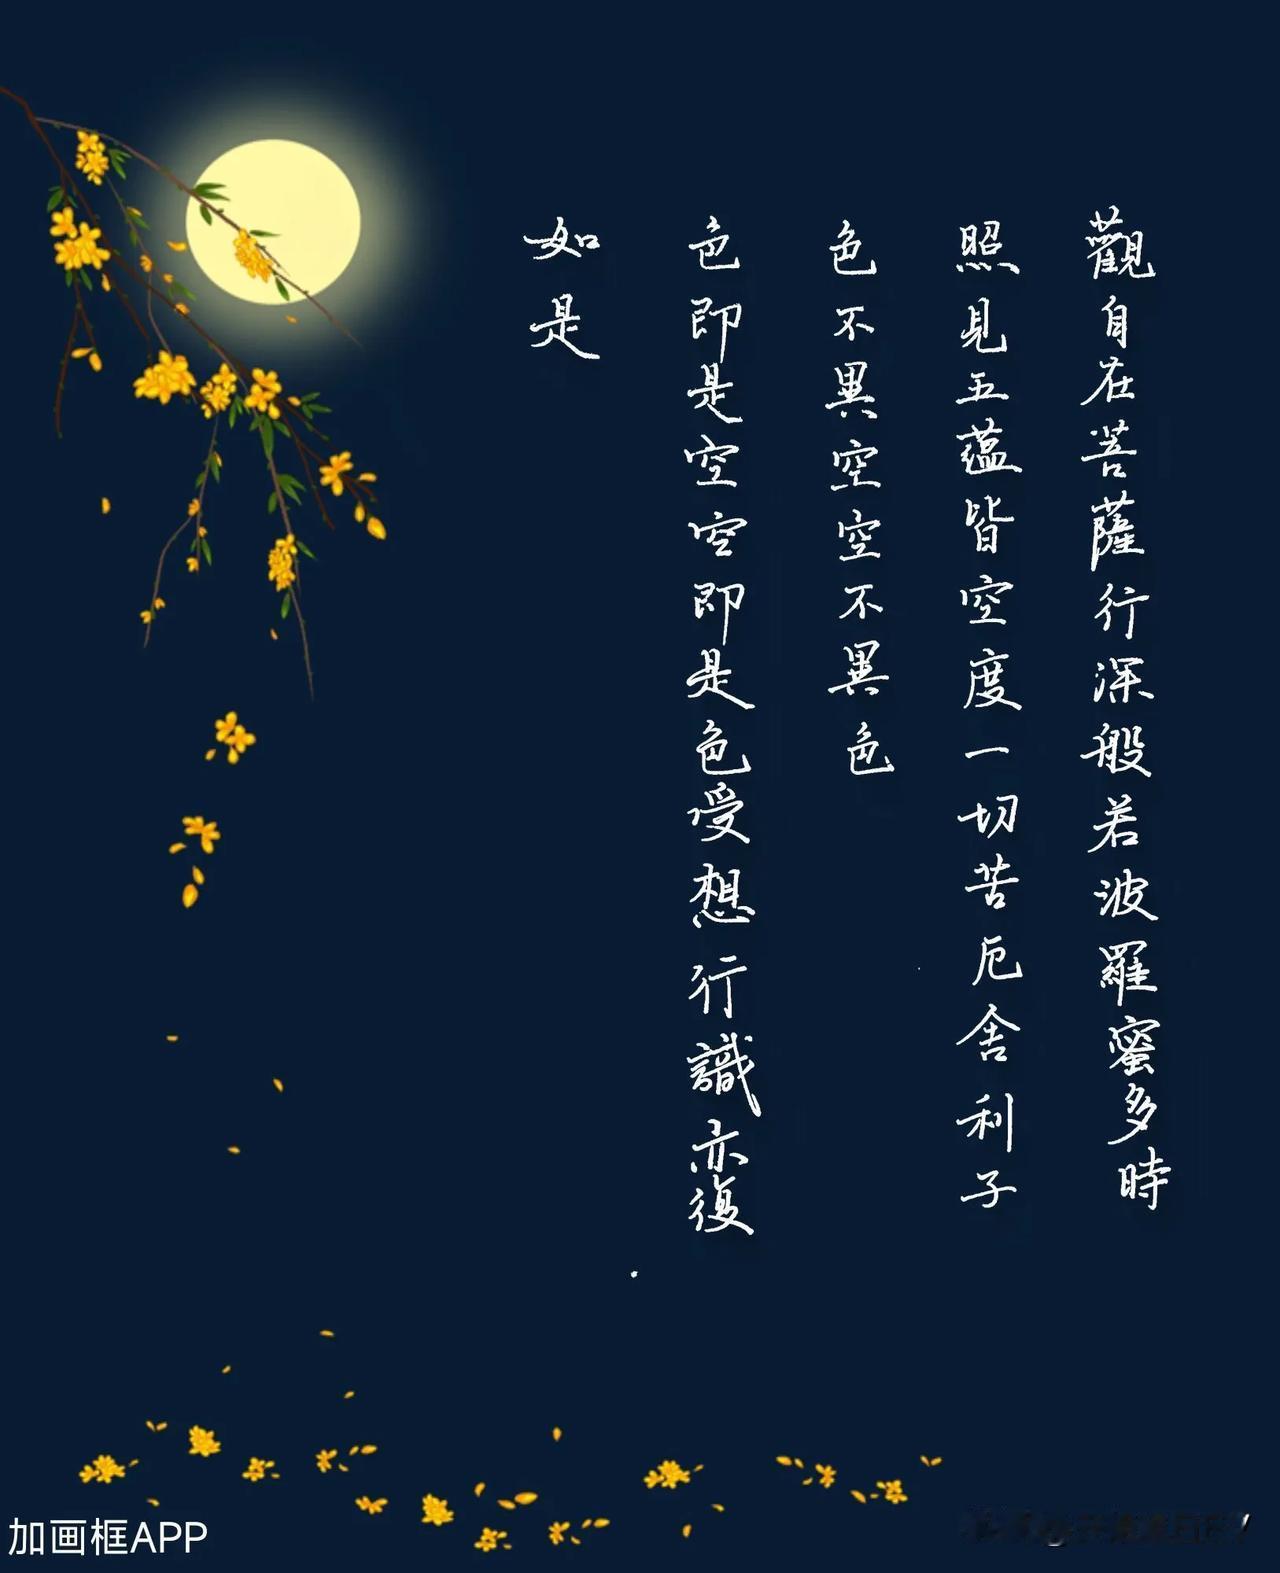 觀自在菩薩行深般若波羅蜜多時
照見五蘊皆空度一切苦厄舍利子
色不異空空不異色
色即是空空即是色受想行識亦復
如是
加画框APP